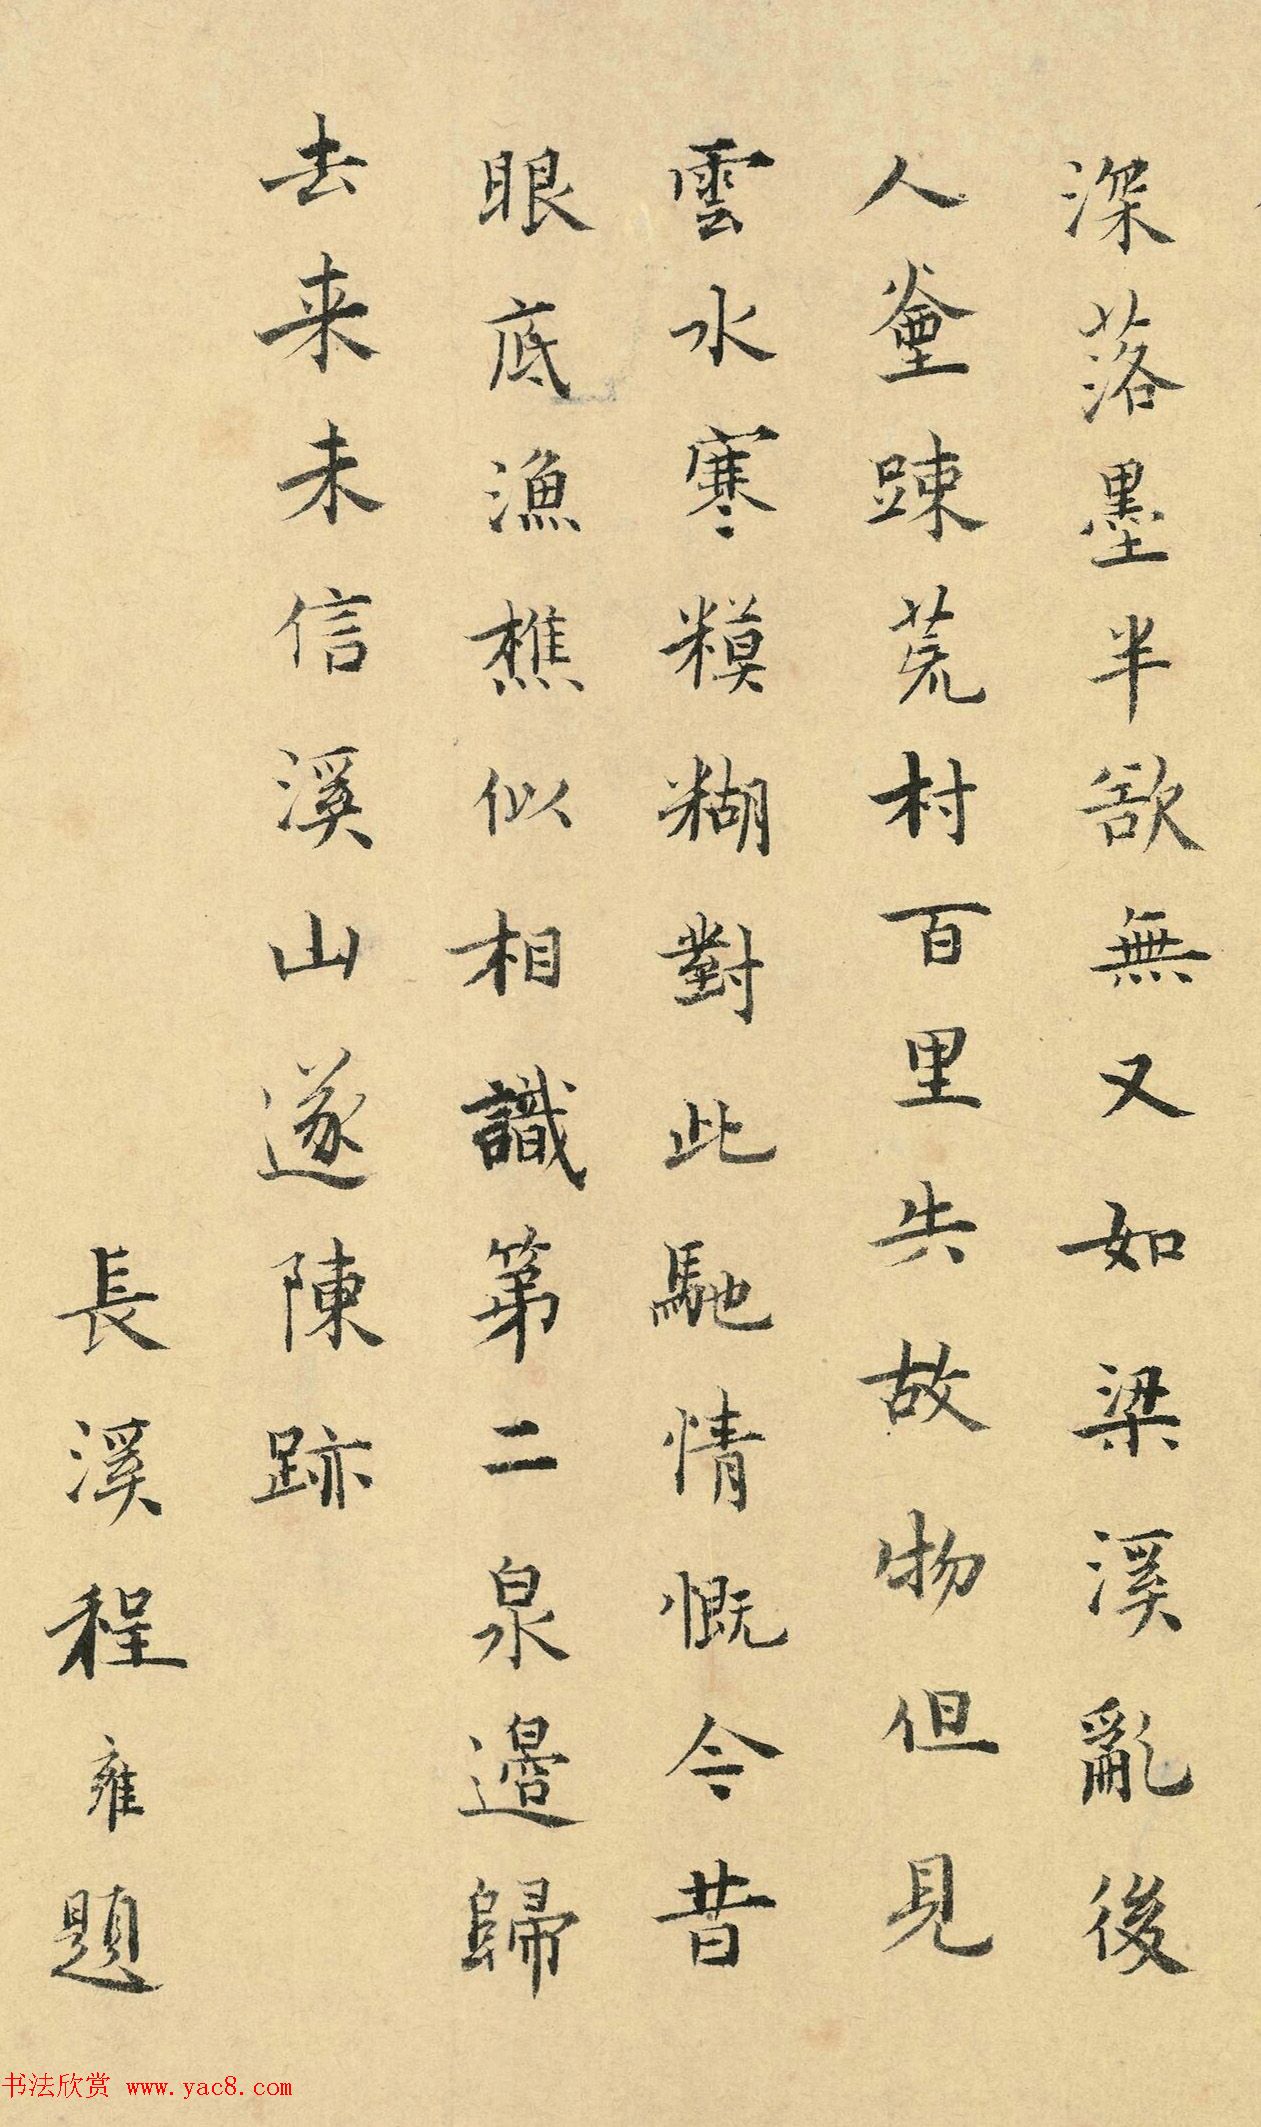 深落墨半欲無又如梁溪亂後
人煙踈荒村百里失故物但見
雲水寒糢糊對此馳情慨今昔
眼底漁樵似相識第二泉邉歸
去来未信溪山遂陳跡
長溪程雍題
书法欣赏 www.yac8.com